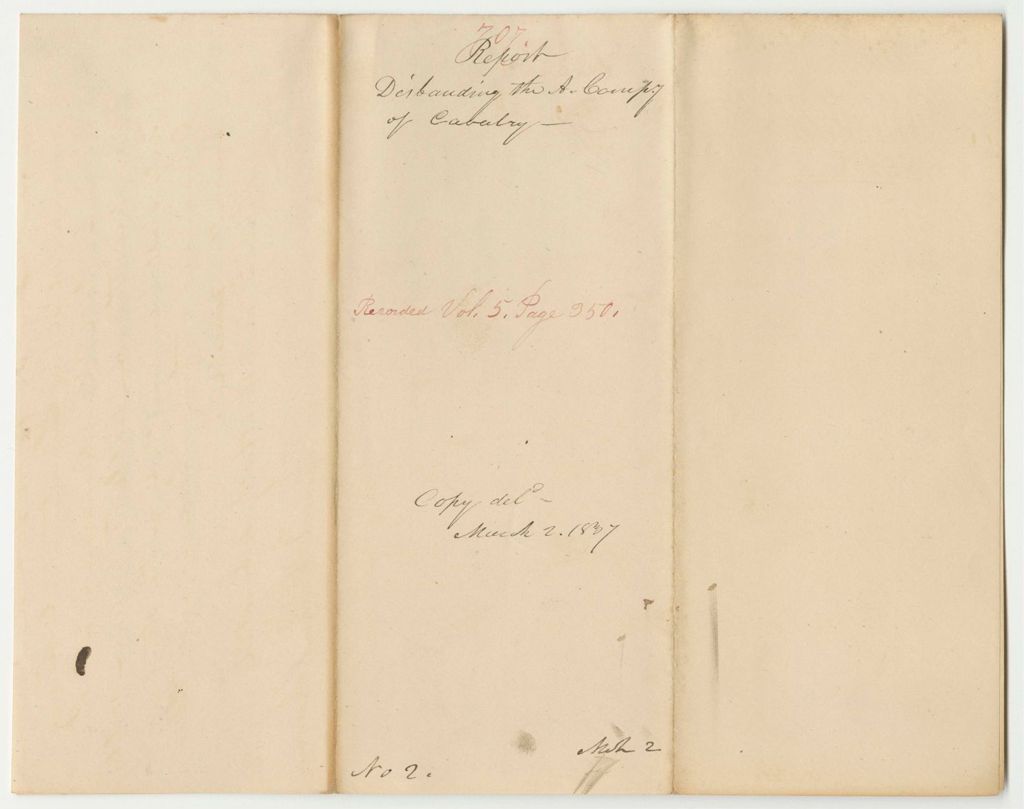 707
Report
Disbanding the A. Compy
of Cavalry —
Recorded Vol. 5. Page 350.
Copy deld –
March 2. 1837
Mch 2
No 2.